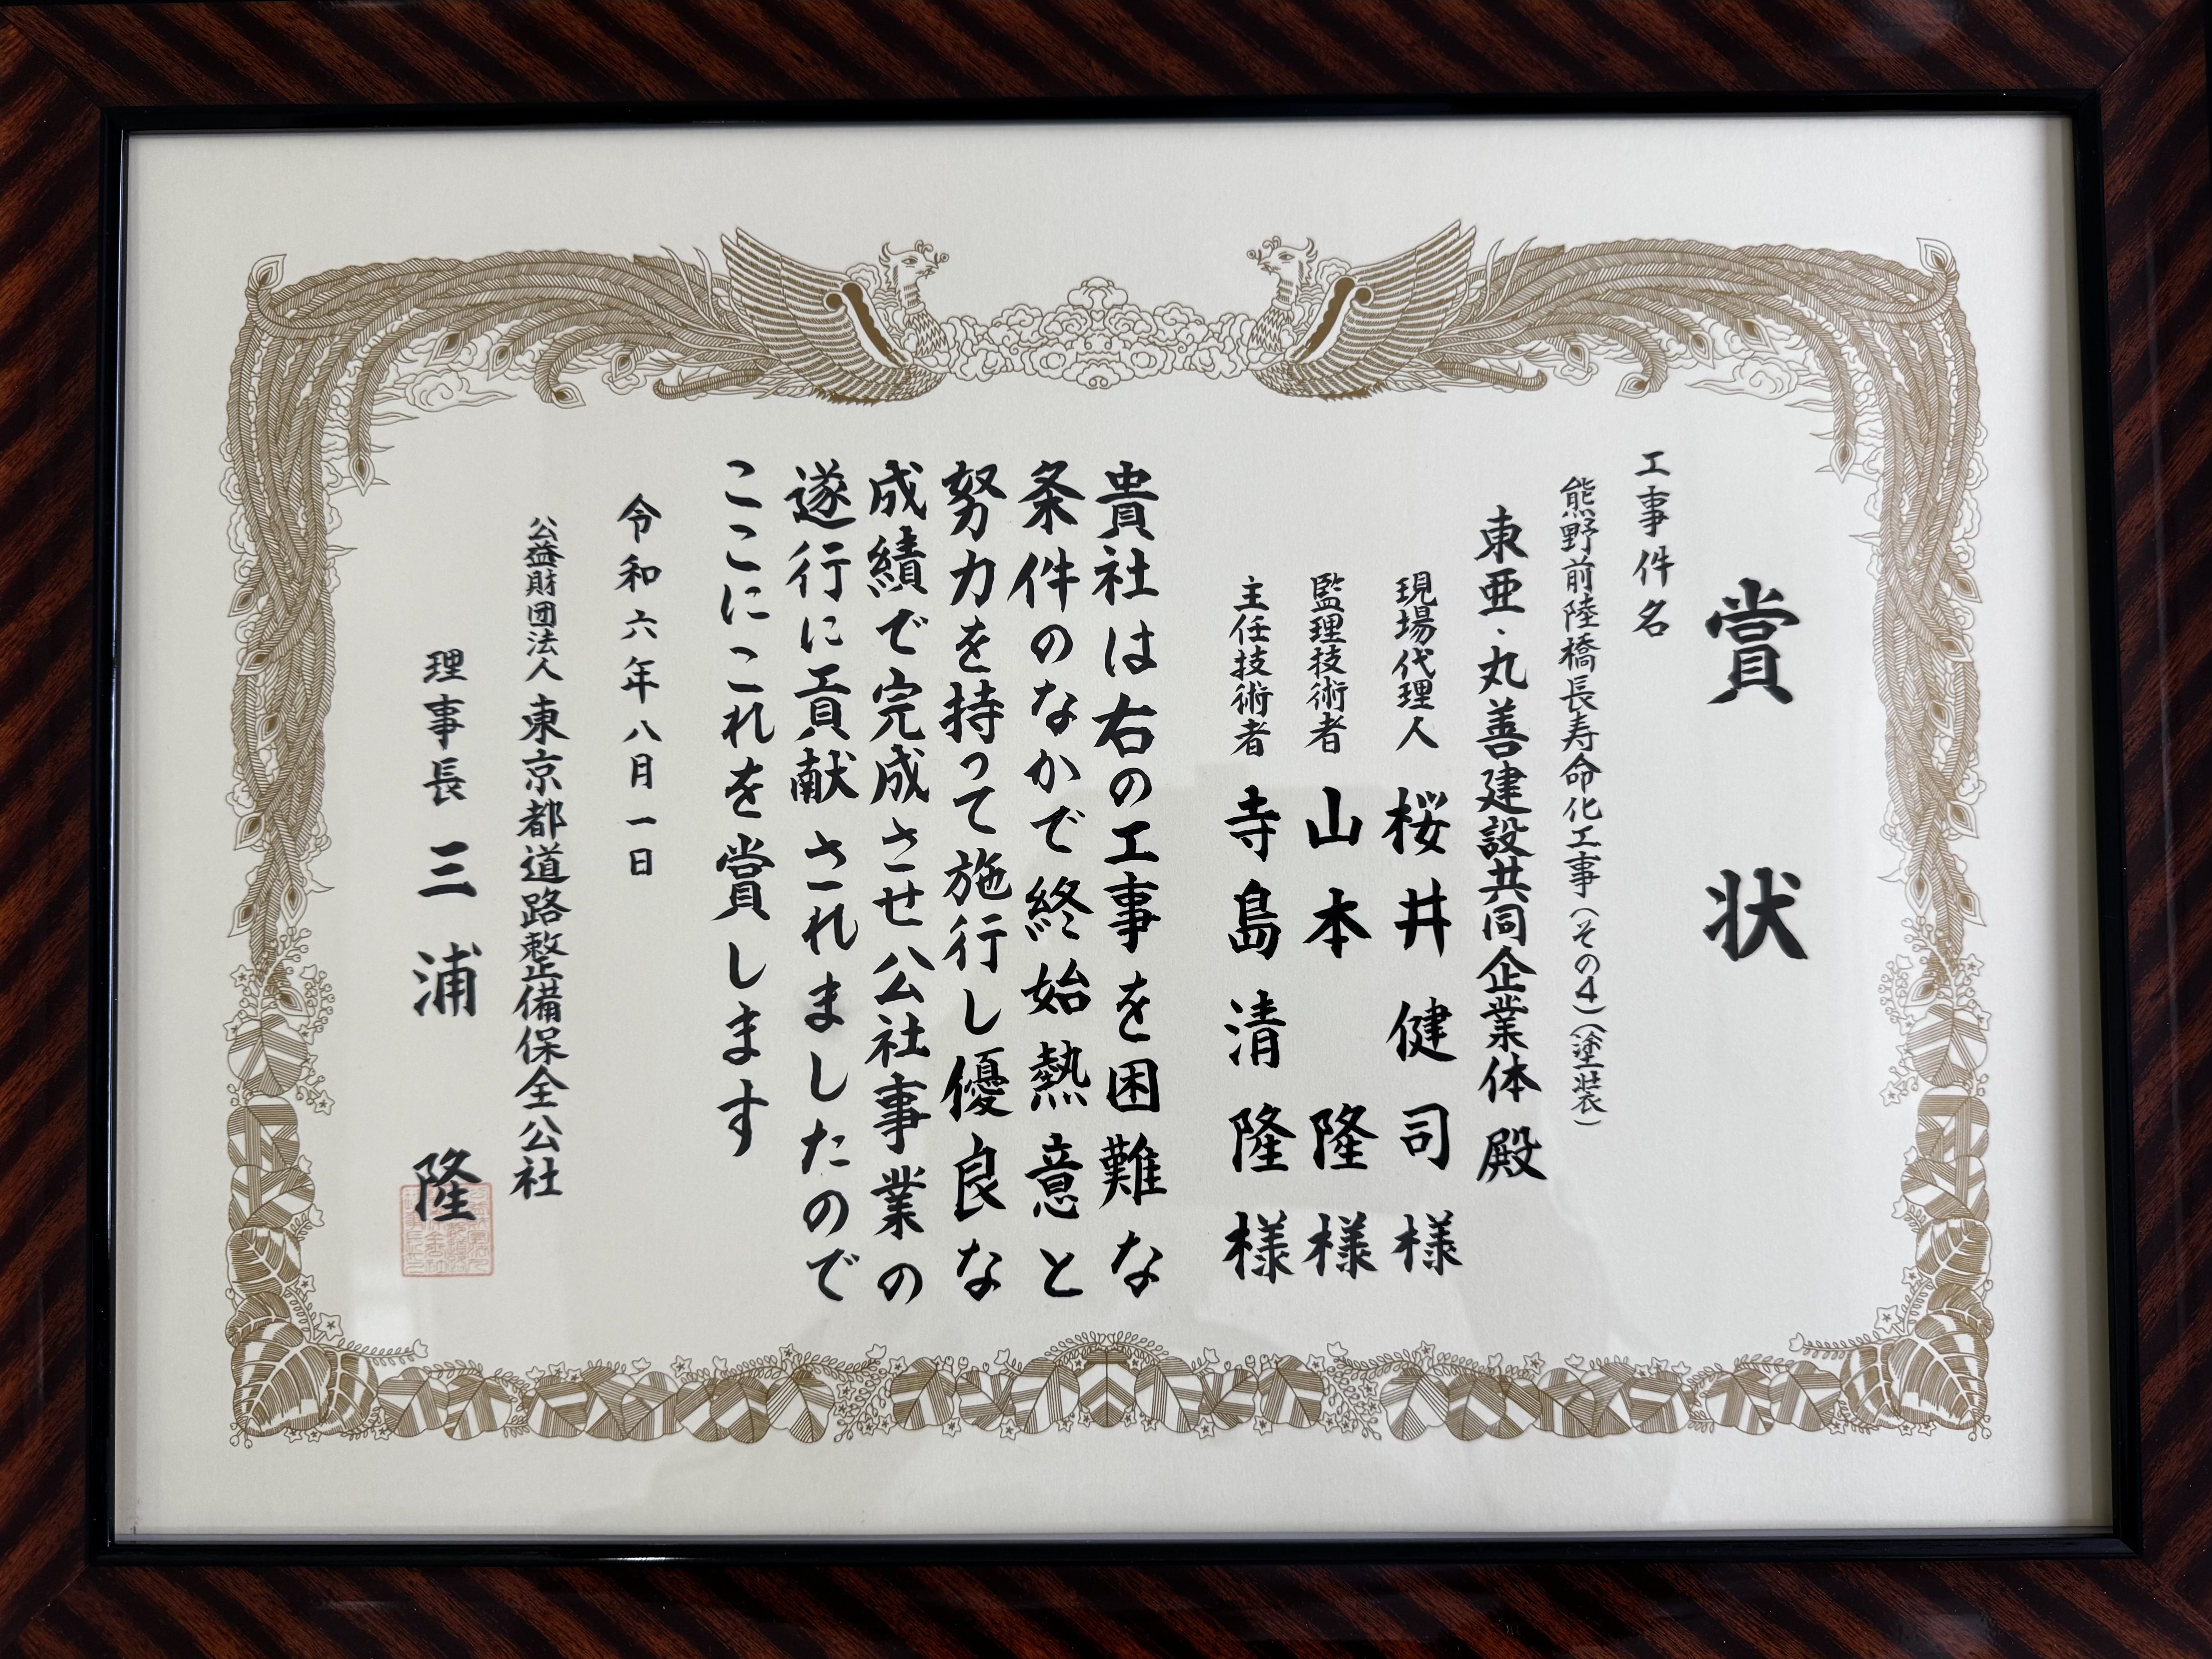 賞状
工事件名
熊野前陸橋長寿命化工事(その4)(塗装)
東亜・丸善建設共同企業体 殿
現場代理人 桜井健司様
監理技術者 山本隆様
主任技術者 寺島清隆様
貴社は右の工事を困難な
条件のなかで終始熱意と
努力を持って施行し優良な
成績で完成させ公社事業の
遂行に貢献されましたので
ここにこれを賞します
令和六年八月一日
公益財団法人 東京都道路整備保全公社
理事長 三浦 隆